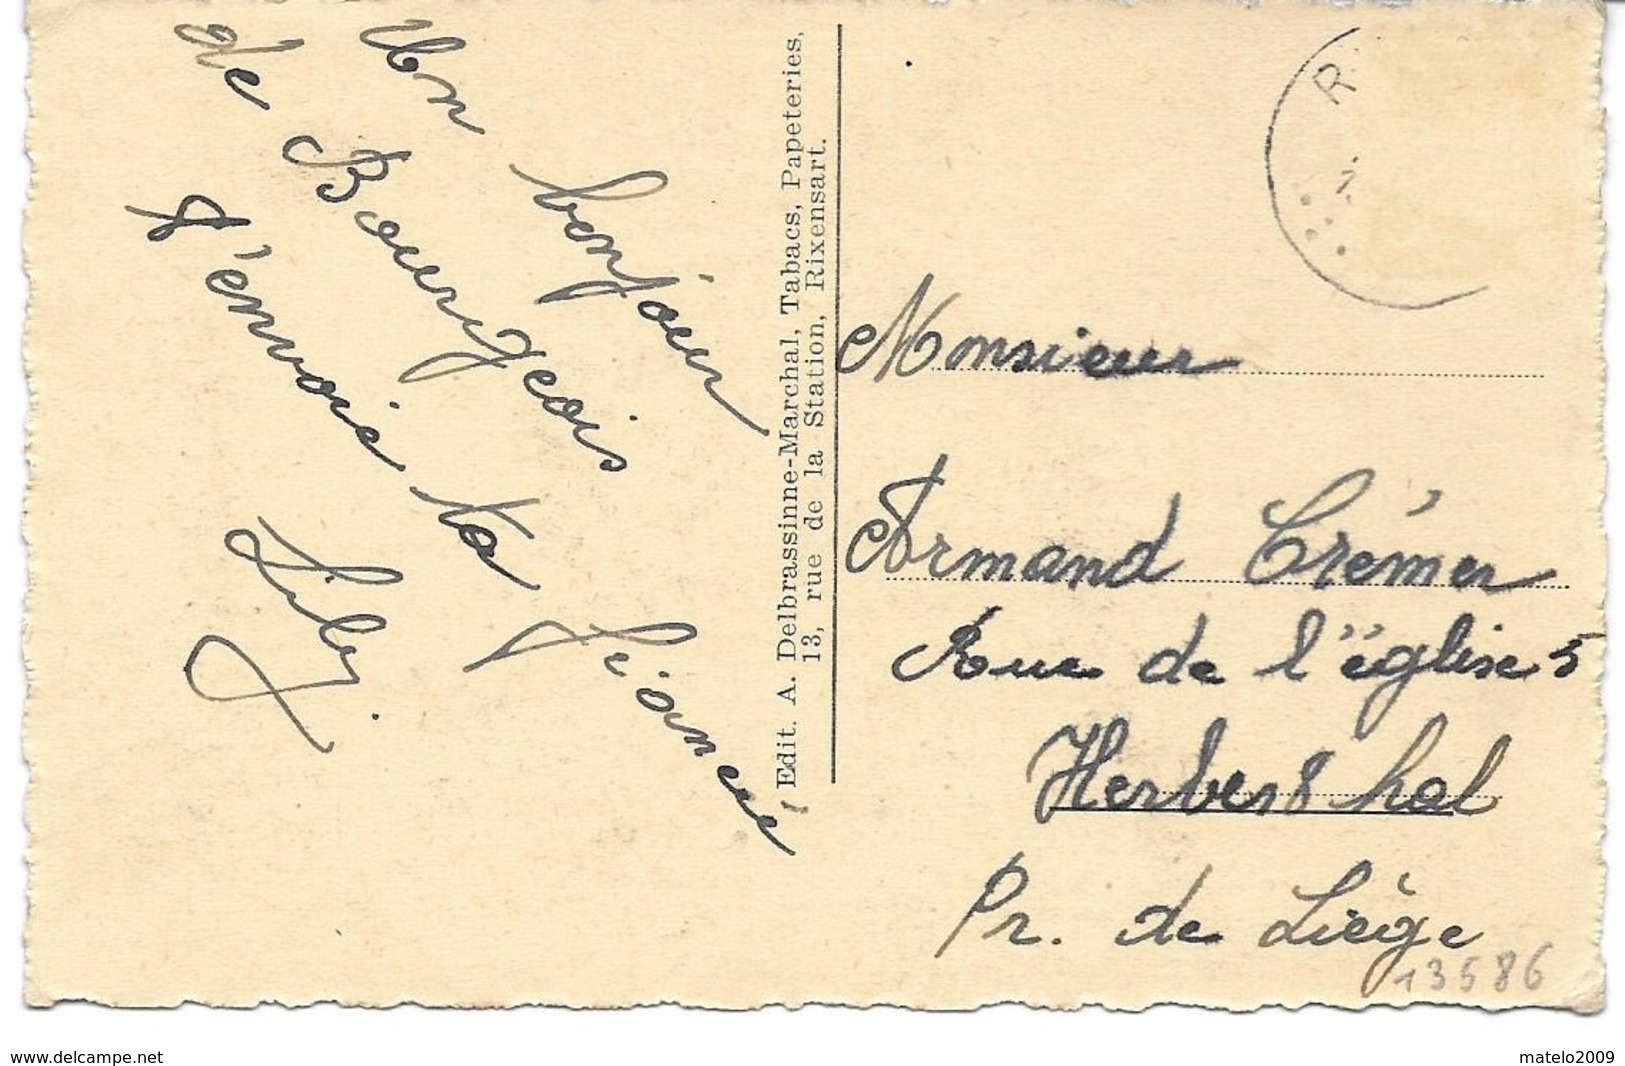 Un bonjour
de Bourgeois
t'envoie ta fiancée
Lily
Edit. A. Delbrassinne-Marchal, Tabacs, Papeteries,
13, rue de la Station, Rixensart.
R
Monsieur
Armand Crémer
Rue de l'église 5
Herbesthal
Pr. de Liège
13586
www.delcampe.net
matelo2009